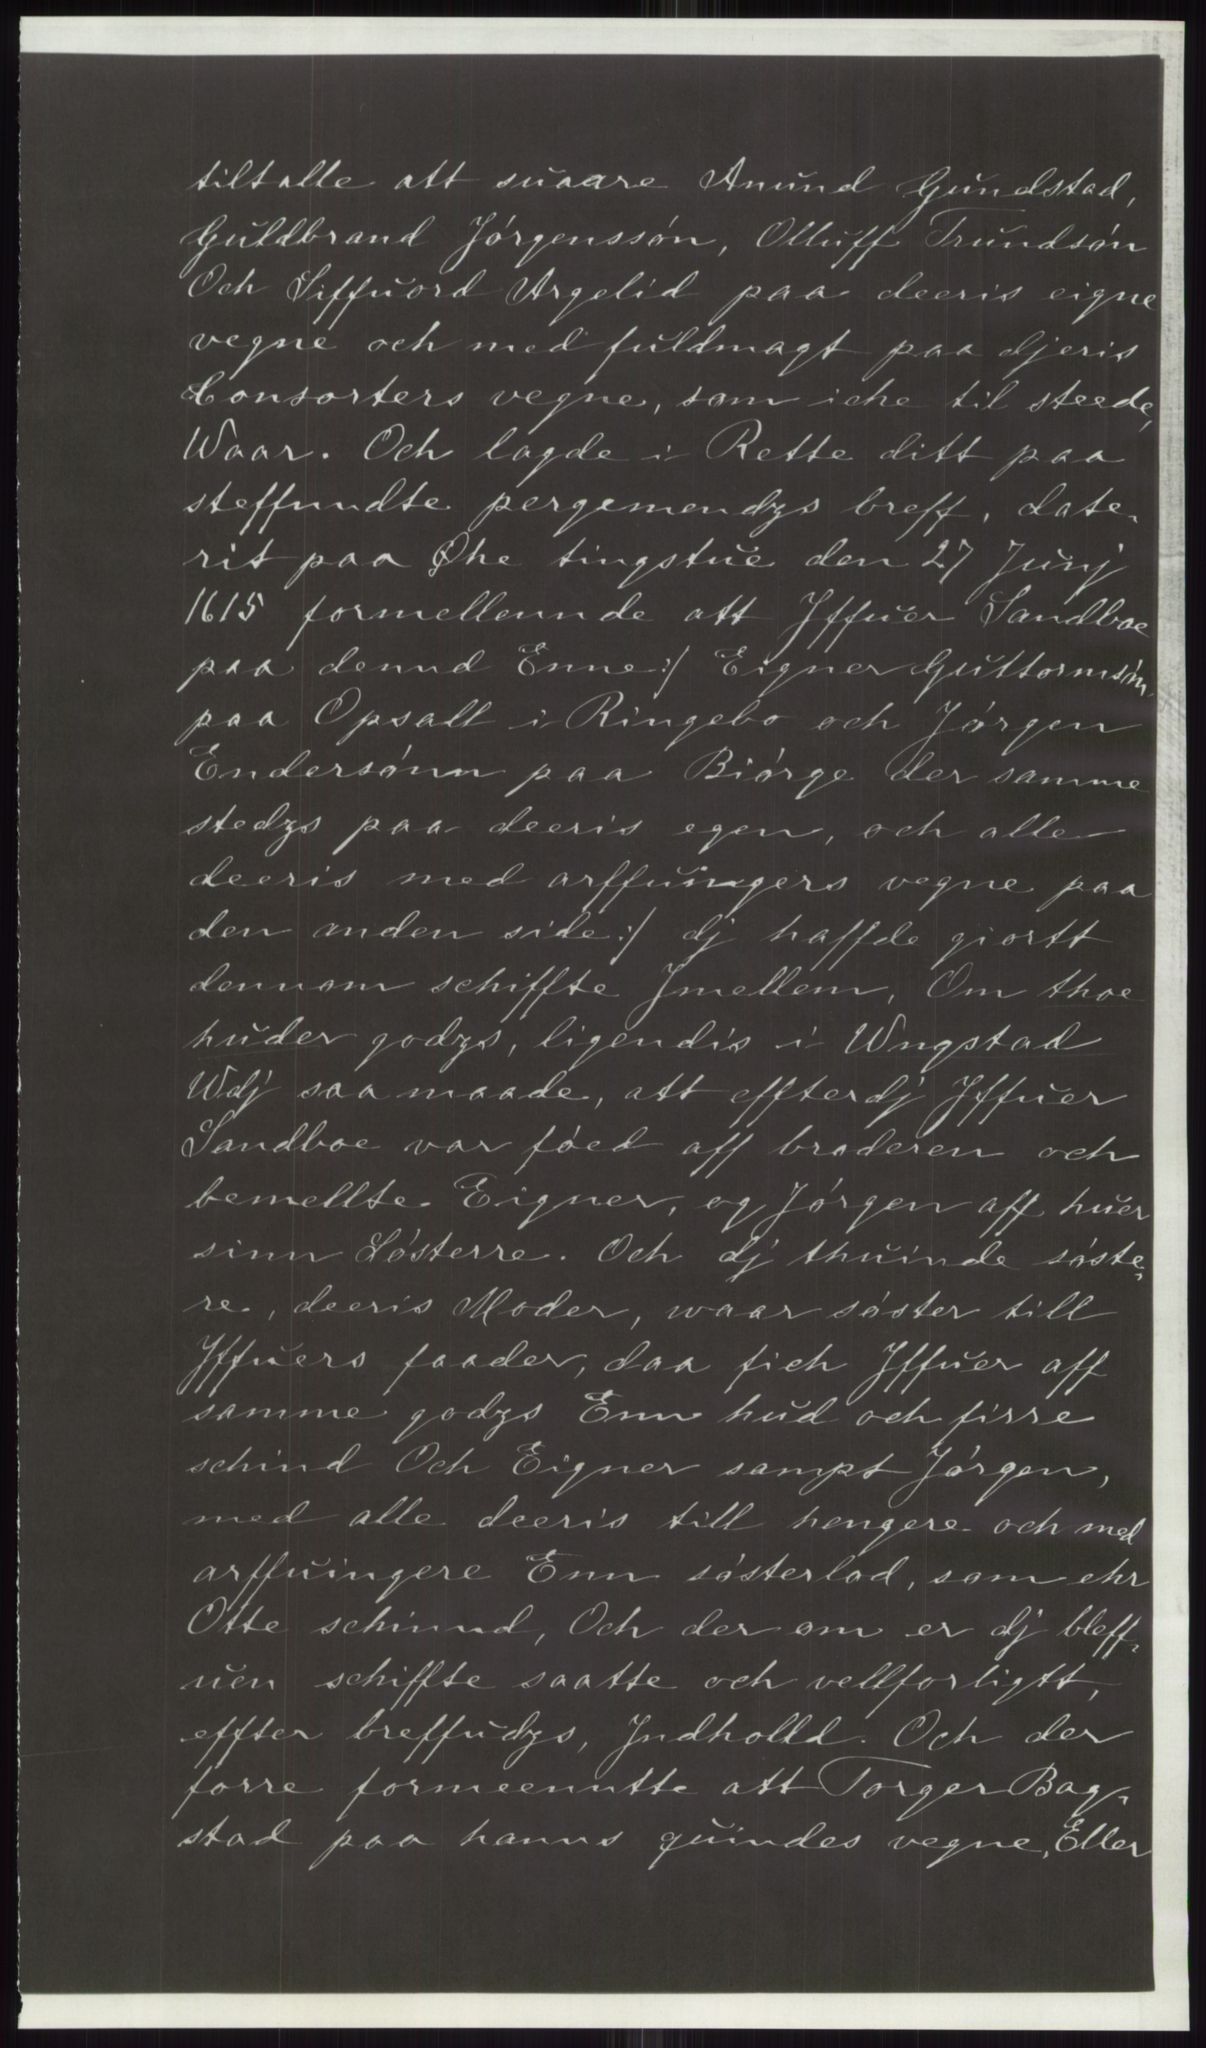 tiltalle att suaare Anund Gundstad,
Guldbrand Jørgenssøn, Olluff Trundsøn
Och Siffuord Argelid paa deeris eigne
vegne och med fuldmagt paa djeris
Consorters vegne, som iche til steede,
Waar. Och lagde i Rette ditt paa
steffundte pergemendzs breff, date-
rit paa Øhe tingstue den 27 Junj
1615 formellennde att Jffuer Sandboe
paa dennd Enne:/ Eigner Guttormsøn,
paa Opsall i Ringebo och Jørgen
Endersønn paa Biørge der samme
stedzs paa deeris egen, och alle
deeris med arffuingers vegne paa
den anden side:/ dj haffde giortt
dennom schiffte Jmellem, Om thoe
huder godzs, ligendis i Wngstad
Wdj saa maade, att effterdj Jffuer
Sandboe var føed aff broderen och
bemellte Eigner, og Jørgen aff huer
sinn Søsterre. Och dj thuinde søste-
re, deeris Moder, waar søster till
Jffuers faader, daa fich Jffuer aff
samme godzs Enn hud och firre
schind Och Eigner sampt Jørgen,
med alle deeris till hengere och med
arffuingere Enn søsterlod, som ehr
Otte schinnd, Och der om er dj bleff-
uen schiffte saatte och vellforligtt,
effter breffudzs, Jndholld. Och der
forre formeenntte att Torger Bag-
stad paa hanns quindes vegne, Eller